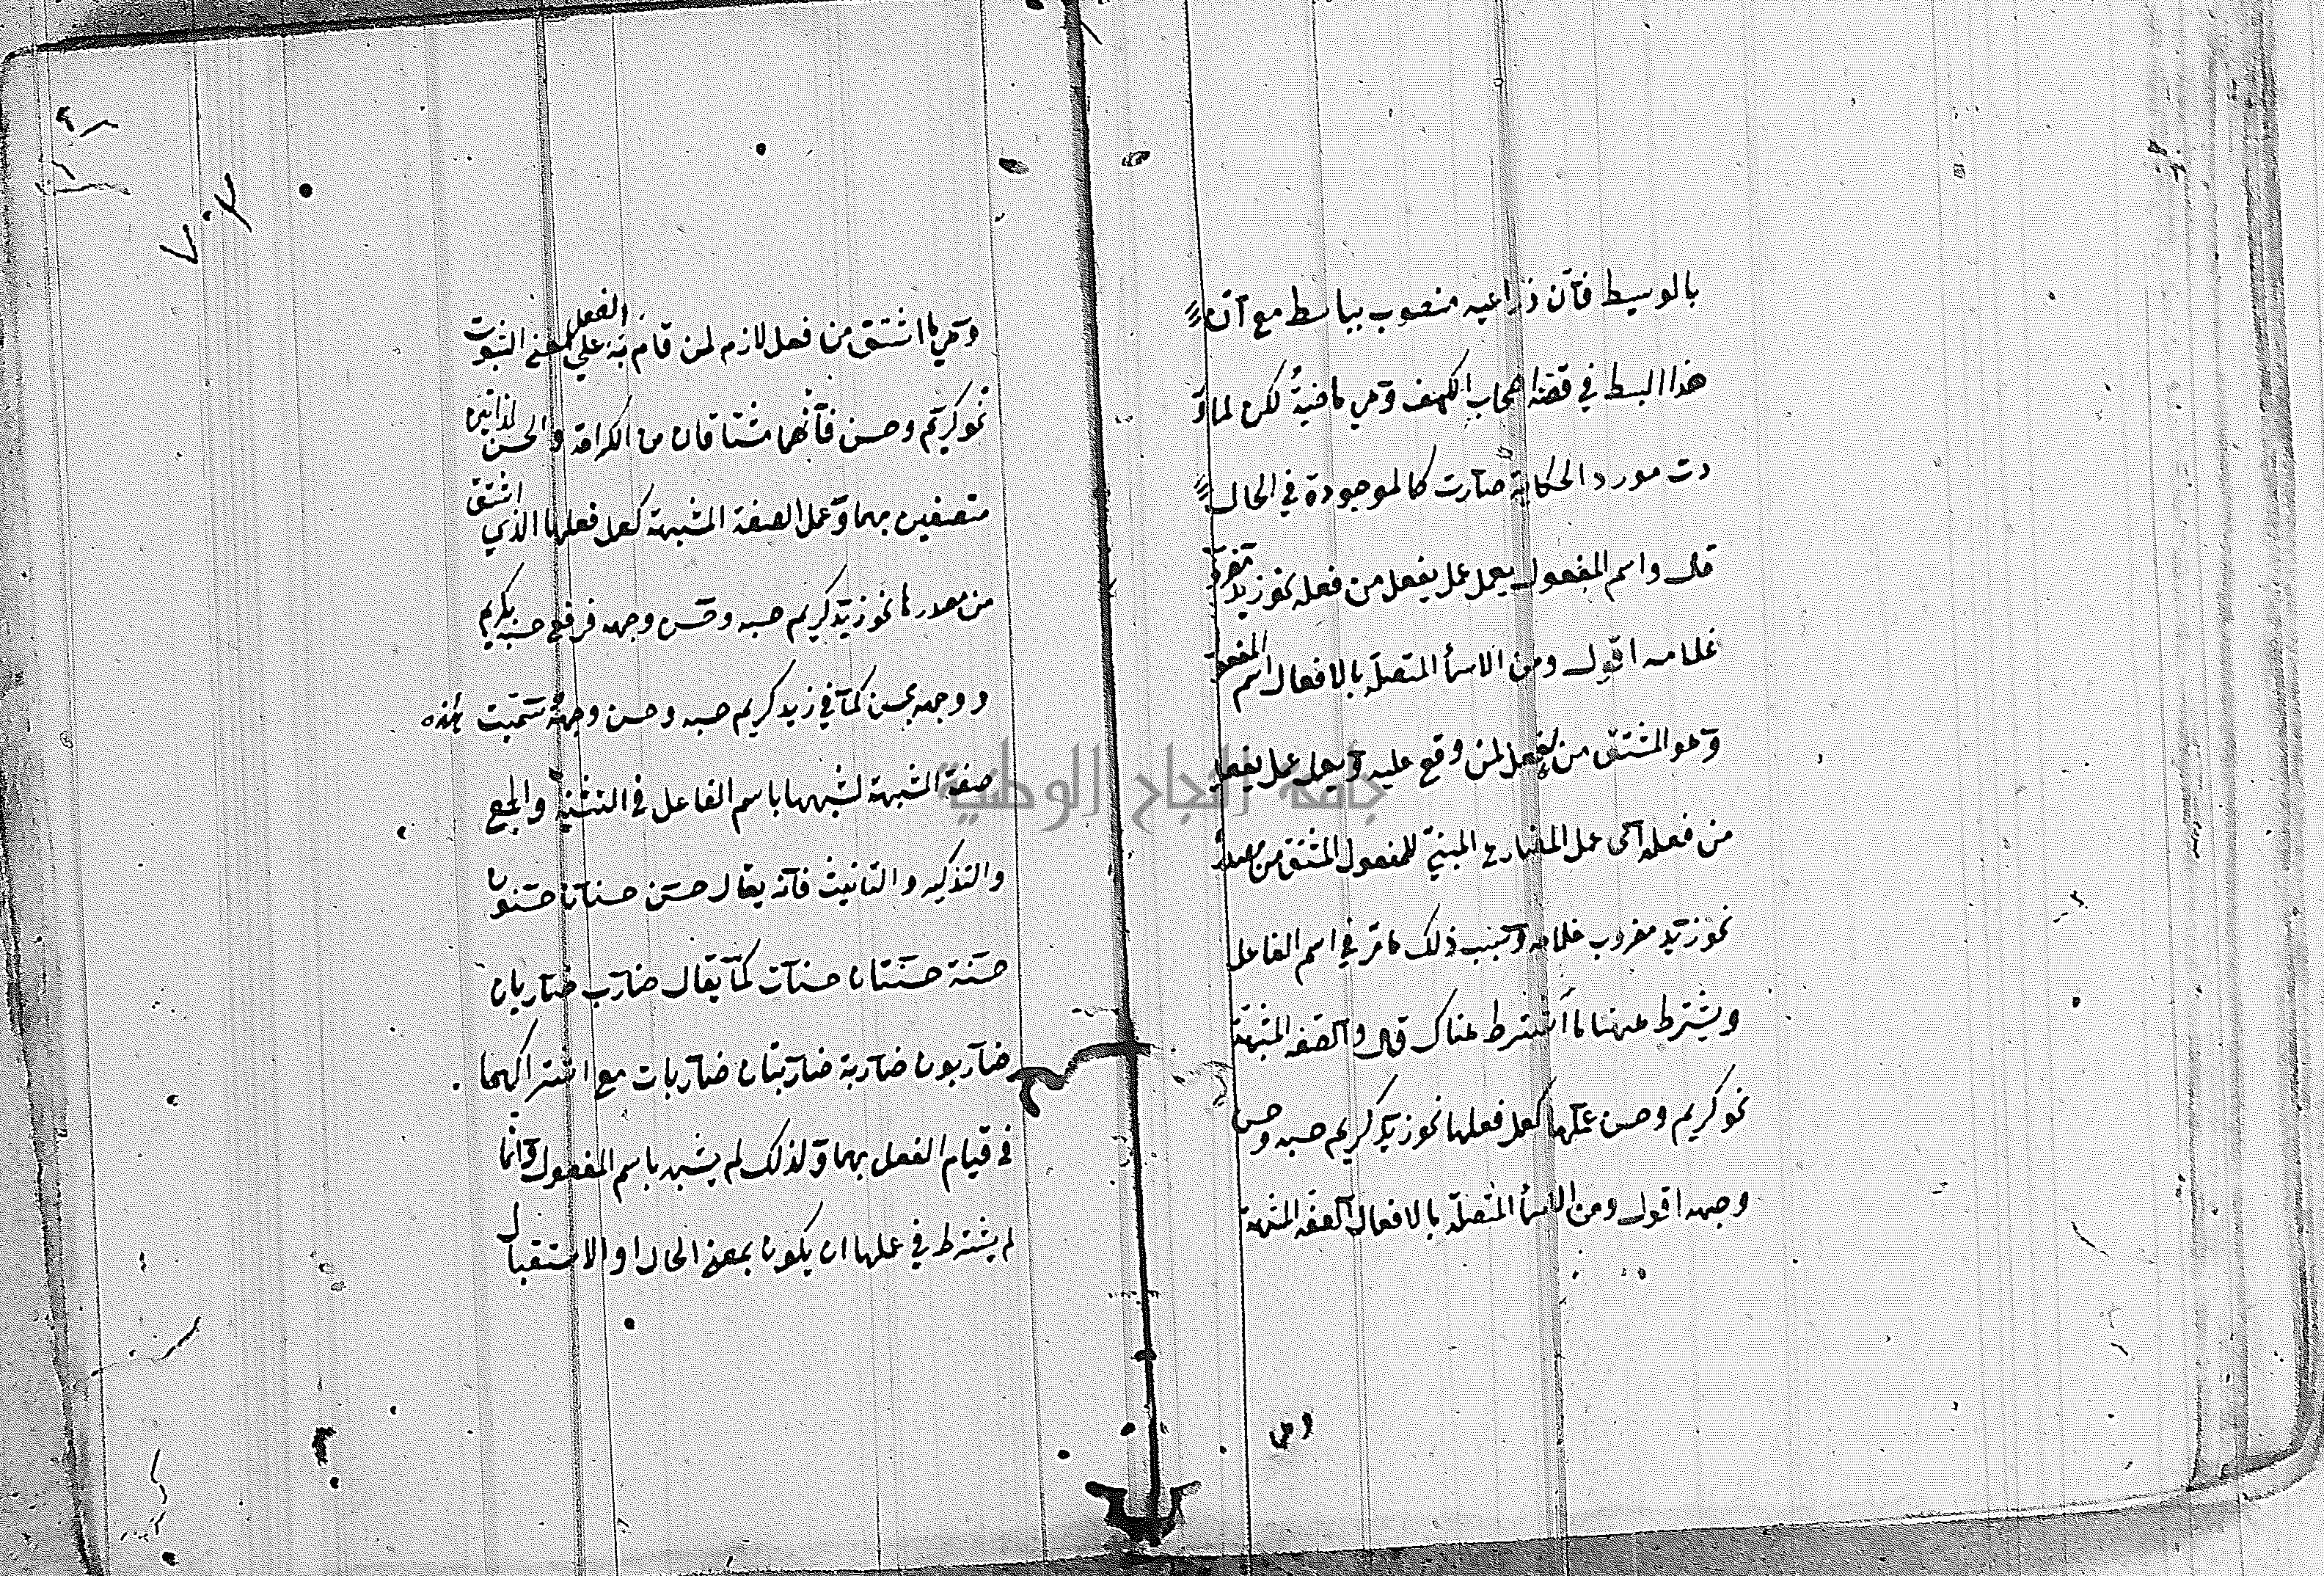 بالوسيط فان ذراعيه منصوب بباسط مع ان
هذا البسط في قصة اصحاب الكهف وهي ماضية لكن لما و
دت مورد الحكاية صارت كالموجودة في الحال
قال واسم المفعول يعمل عمل يفعل من فعله نحو زيد مضروب
غلامه اقول ومن الاسماء المتصلة بالافعال اسم المفعول
وهو المشتق من يفعل لمن وقع عليه ويعمل عمل يفعل
من فعله اى عمل المضارع المبني للمفعول المشتق من مصدره
نحو زيد مضروب غلامه وسبب ذلك ما مر في اسم الفاعل
ويشترط ههنا ما اشترط هناك قال والصفة المشبهة
نحو كريم وحسن عملها كعمل فعلها نحو زيد كريم حسبه وحسن
وجهه اقول ومن الاسماء المتصلة بالافعال الصفة المشبهة
وهي
وهي ما اشتق من فعل لازم لمن قام به الفعل على معنى الثبوت
نحو كريم وحسن فانهما مشتاقان من الكرامة والحسن لذاتين
متصفين بهما وعمل الصفة المشبهة كعمل فعلها الذي اشتق
من مصدرها نحو زيد كريم حسبه وحسن وجهه فرفع حسبه بكريم
و وجهه بحسن كما في زيد كريم حسبه وحسن وجهه سميت هذه
صفة المشبهة لشبهها باسم الفاعل في التثنية والجمع
والتذكير والتانيث فانه يقال حسن حسنان حسنون
حسنة حسنتان حسنات كما يقال ضارب ضاربان
ضاربون ضاربة ضاربتان ضاربات مع اشتراكهما
في قيام الفعل بهما ولذلك لم يشبه باسم المفعول وانما
لم يشترط في عملها ان يكون بمعنى الحال او الاستقبال
جامعة النجاح الوطنية